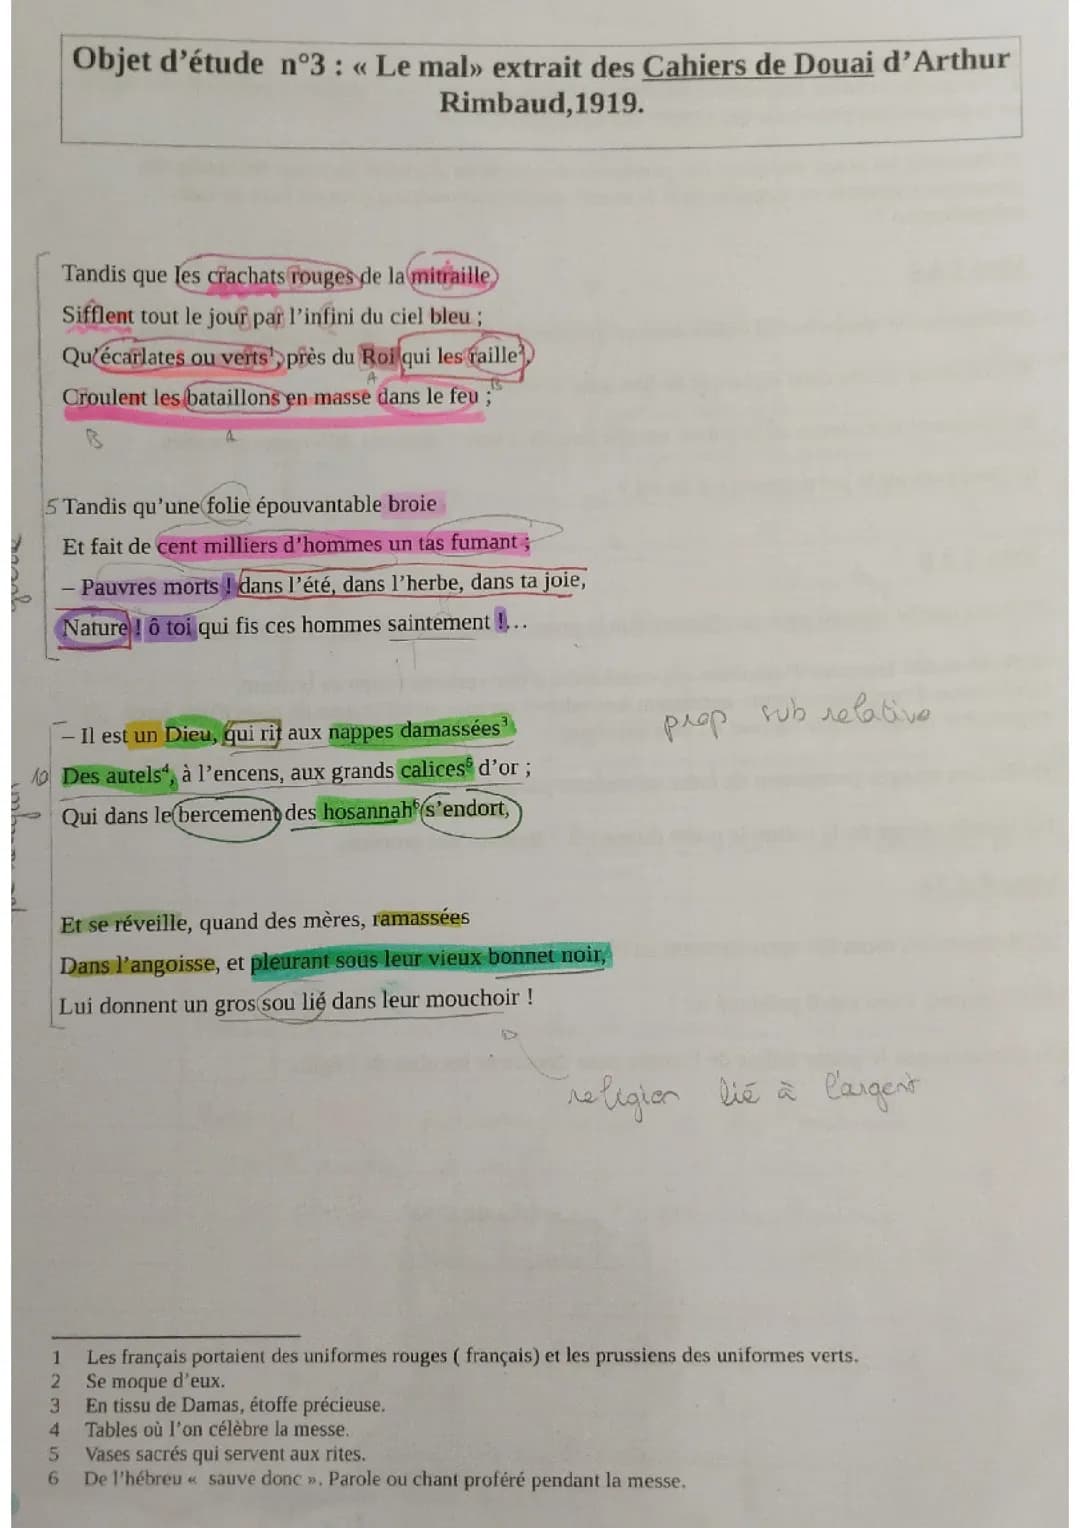 Objet d'étude n°3 : « Le mal» extrait des Cahiers de Douai d'Arthur
Rimbaud,1919.
Tandis que les crachats rouges de la mitraille
Sifflent tout le jour par l'infini du ciel bleu ;
Qu'écarlates ou verts¹, près du Roi qui les raille²,
Croulent les bataillons en masse dans le feu ;
A
B
B
A
5 Tandis qu'une folie épouvantable broie
Et fait de cent milliers d'hommes un tas fumant ;
– Pauvres morts ! dans l'été, dans l'herbe, dans ta joie,
Nature ! ô toi qui fis ces hommes saintement !...
prop sub relative
– Il est un Dieu, qui rit aux nappes damassées³
10 Des autels⁴, à l'encens, aux grands calices⁵ d'or ;
Qui dans le bercement des hosannah⁶ s'endort,
Et se réveille, quand des mères, ramassées
Dans l'angoisse, et pleurant sous leur vieux bonnet noir,
Lui donnent un gros sou lié dans leur mouchoir !
religion lié à l'argent
1 Les français portaient des uniformes rouges ( français) et les prussiens des uniformes verts.
2 Se moque d'eux.
3 En tissu de Damas, étoffe précieuse.
4 Tables où l'on célèbre la messe.
5 Vases sacrés qui servent aux rites.
6 De l'hébreu « sauve donc ». Parole ou chant proféré pendant la messe.